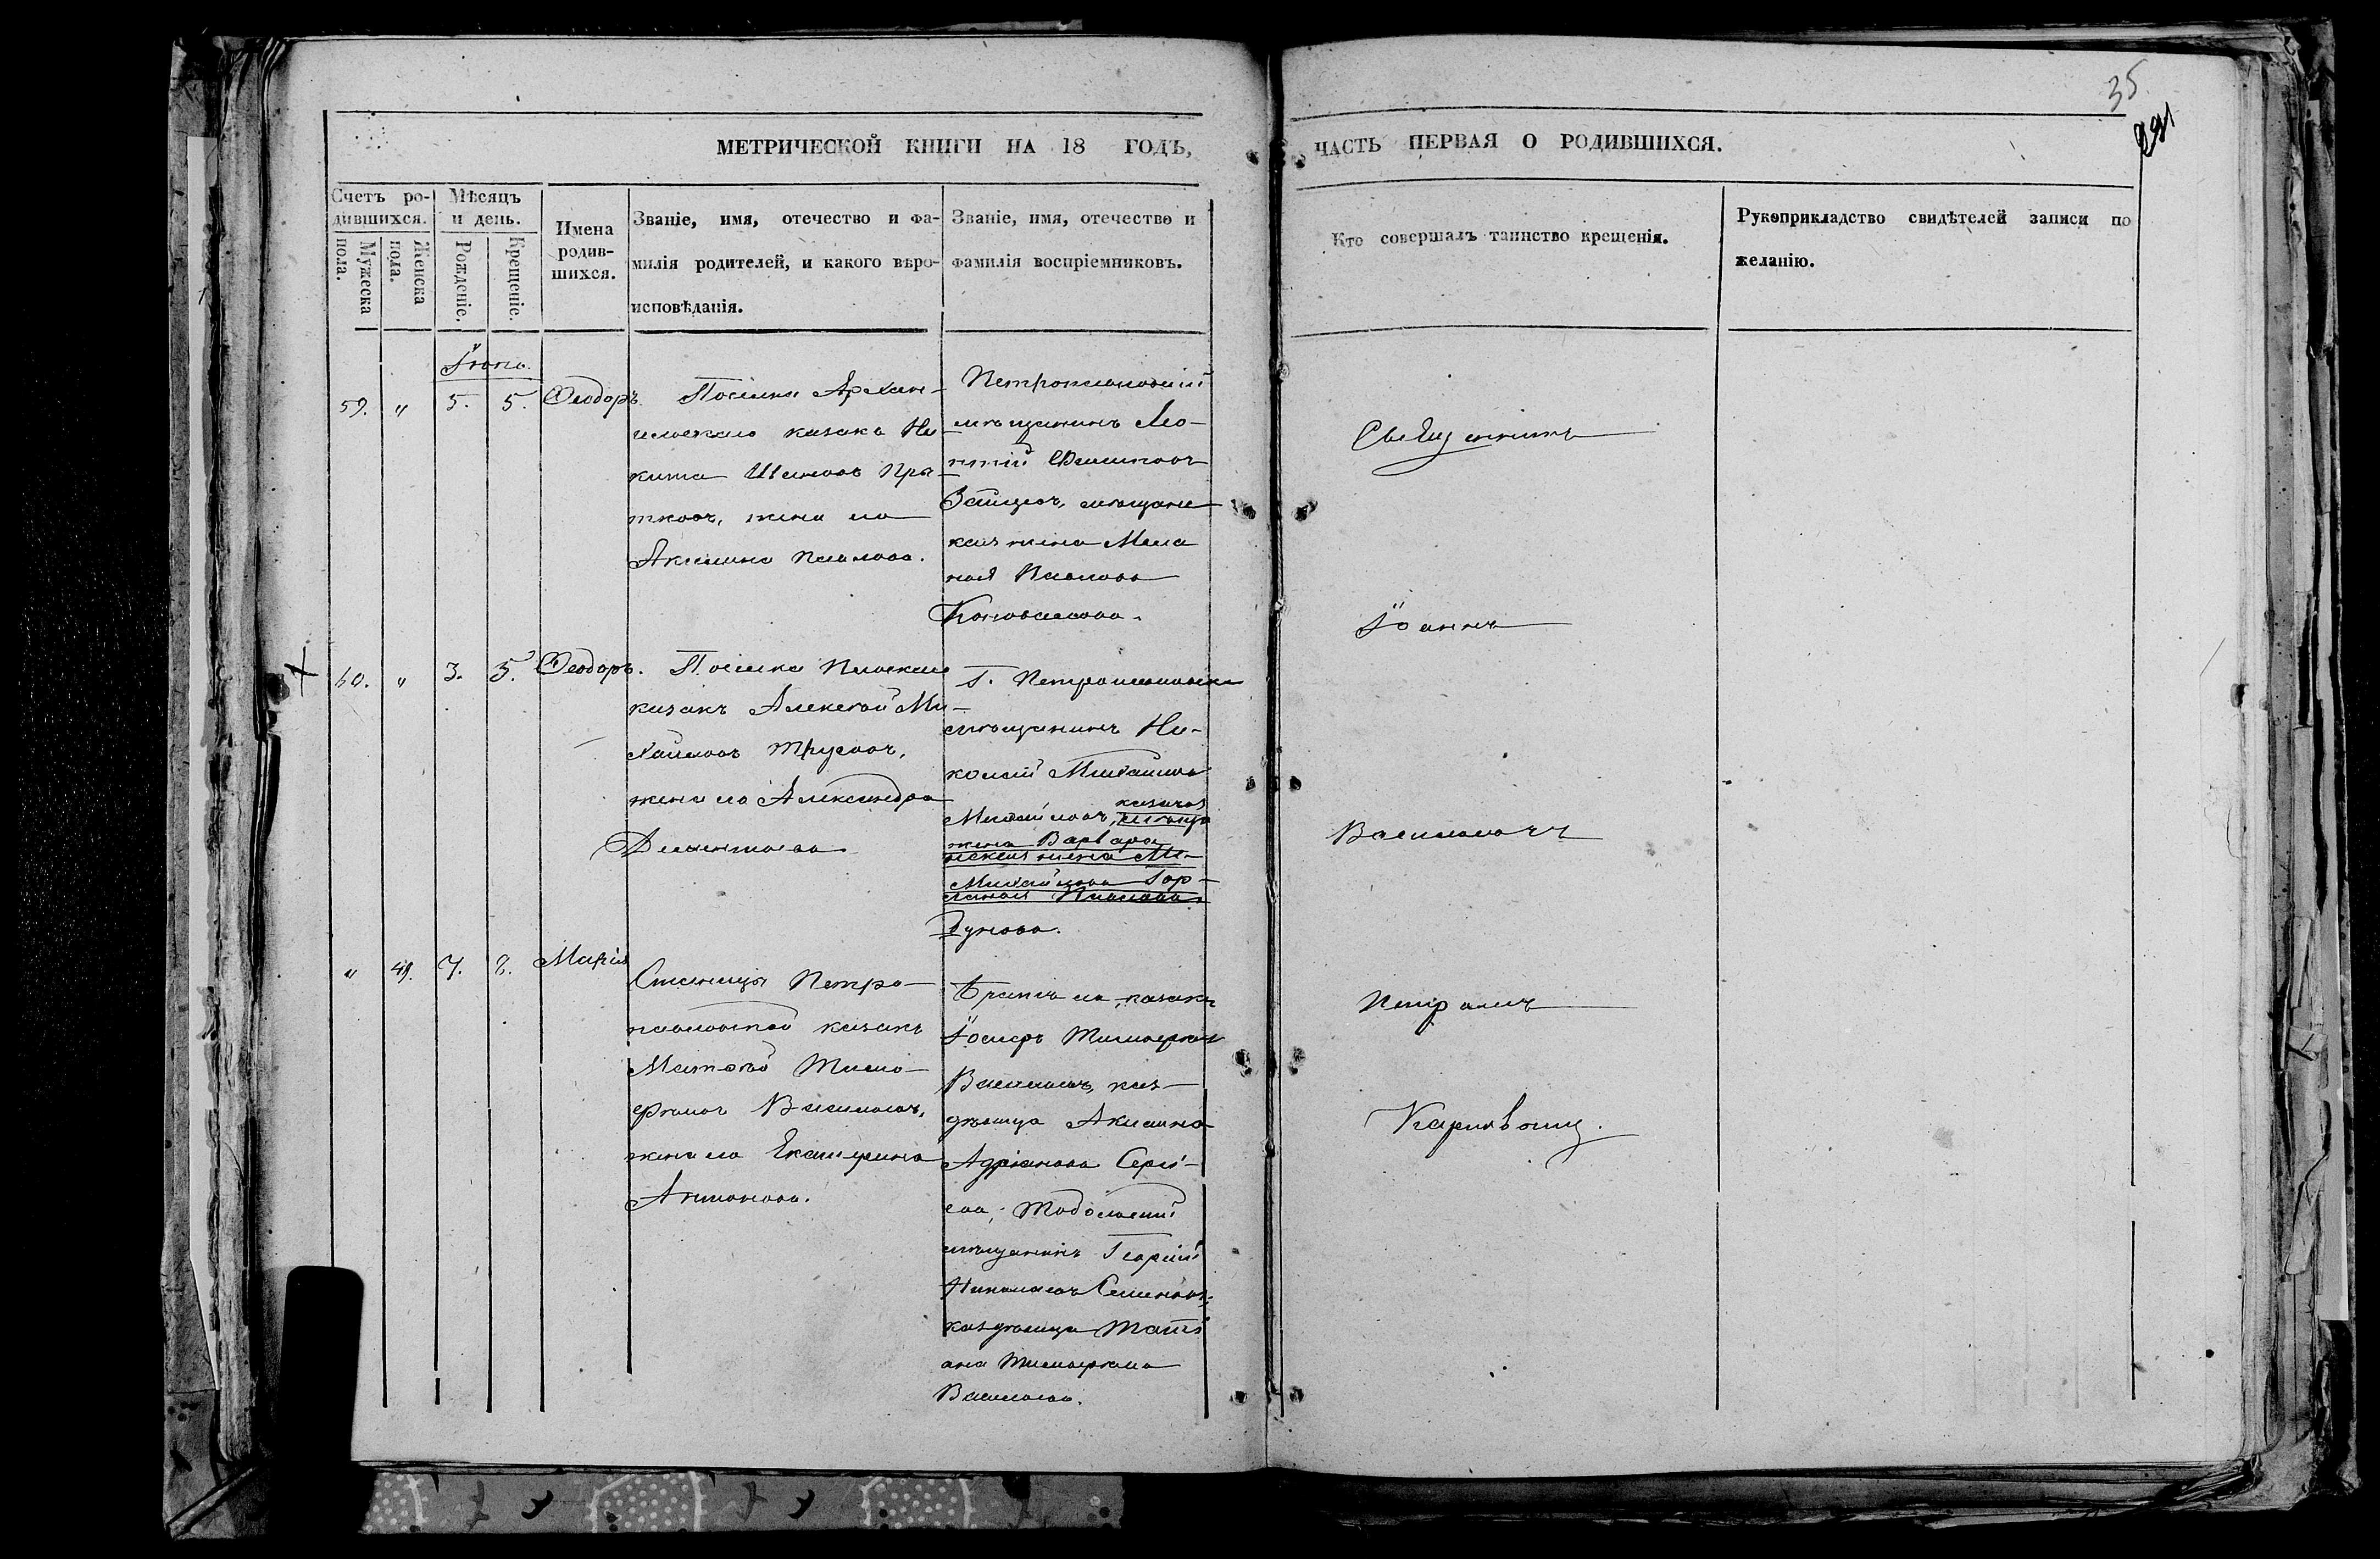 35
291
МЕТРИЧЕСКОЙ КНИГИ НА 18 ГОДЪ,
ЧАСТЬ ПЕРВАЯ О РОДИВШИХСЯ.
Счетъ ро-
дившихся.
Мужеска
пола.
Женска
пола.
Мѣсяцъ
и день.
Рожденіе.
Крещеніе.
Имена
родив-
шихся.
Званіе, имя, отечество и фа-
милія родителей, и какого вѣро-
исповѣданія.
Званіе, имя, отечество и
фамилія воспріемниковъ.
Кто совершалъ таинство крещенія.
Рукоприкладство свидѣтелей записи по
желанію.
Іюнь.
59. " 5. 5. Ѳеодоръ.
Поселка Архан-
гельскаго казакъ Ни-
кита Ивановъ
жена его
Акилина Павлова.
Петропавловскій
мѣщанинъ Лео-
нтій Филиповъ
Зайцевъ, мѣщанс
кая жена Мела
нія Павлова
Коновалова.
60. " 3. 5. Ѳеодоръ.
Поселка
казакъ Алексѣй Ми-
хайловъ Трусовъ,
жена его Александра
Дементьева.
Г. Петропавловска
мѣщанинъ Ни-
колай Михайловъ
Михайловъ, казачья
мѣща
жена Варвара
нская жена Ме-
Михайлова Гор-
ланія Павлова
дунова.
" 49. 7. 8. Марія
Станицы Петро-
павловской казакъ
Матѳѣй Тимо-
фѣевъ Васильевъ,
жена его Екатерина
Антонова.
Братъ его, казакъ
Іосифъ Тимофѣевъ
Васильевъ, каз-
дѣвица Акилина
Адріанова Сергѣ-
ева; Тобольскій
мѣщанинъ Георгій
Николаевъ Семеновъ;
каз дѣвица Татi
ана Тимофѣева
Васильева.
Священникъ
Іоаннъ
Васильевичъ